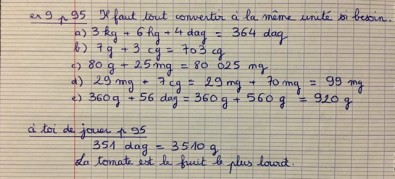 ex 9 p 95 Il faut tout convertir à la même unité si besoin.
a) 3 kg + 6 hg + 4 dag = 364 dag
b) 7 g + 3 cg = 703 cg
c) 80 g + 25 mg = 80 025 mg
d) 29 mg + 7 cg = 29 mg + 70 mg = 99 mg
e) 360 g + 56 dag = 360 g + 560 g = 920 g
à toi de jouer p 95
351 dag = 3510 g
La tomate est le fruit le plus lourd.